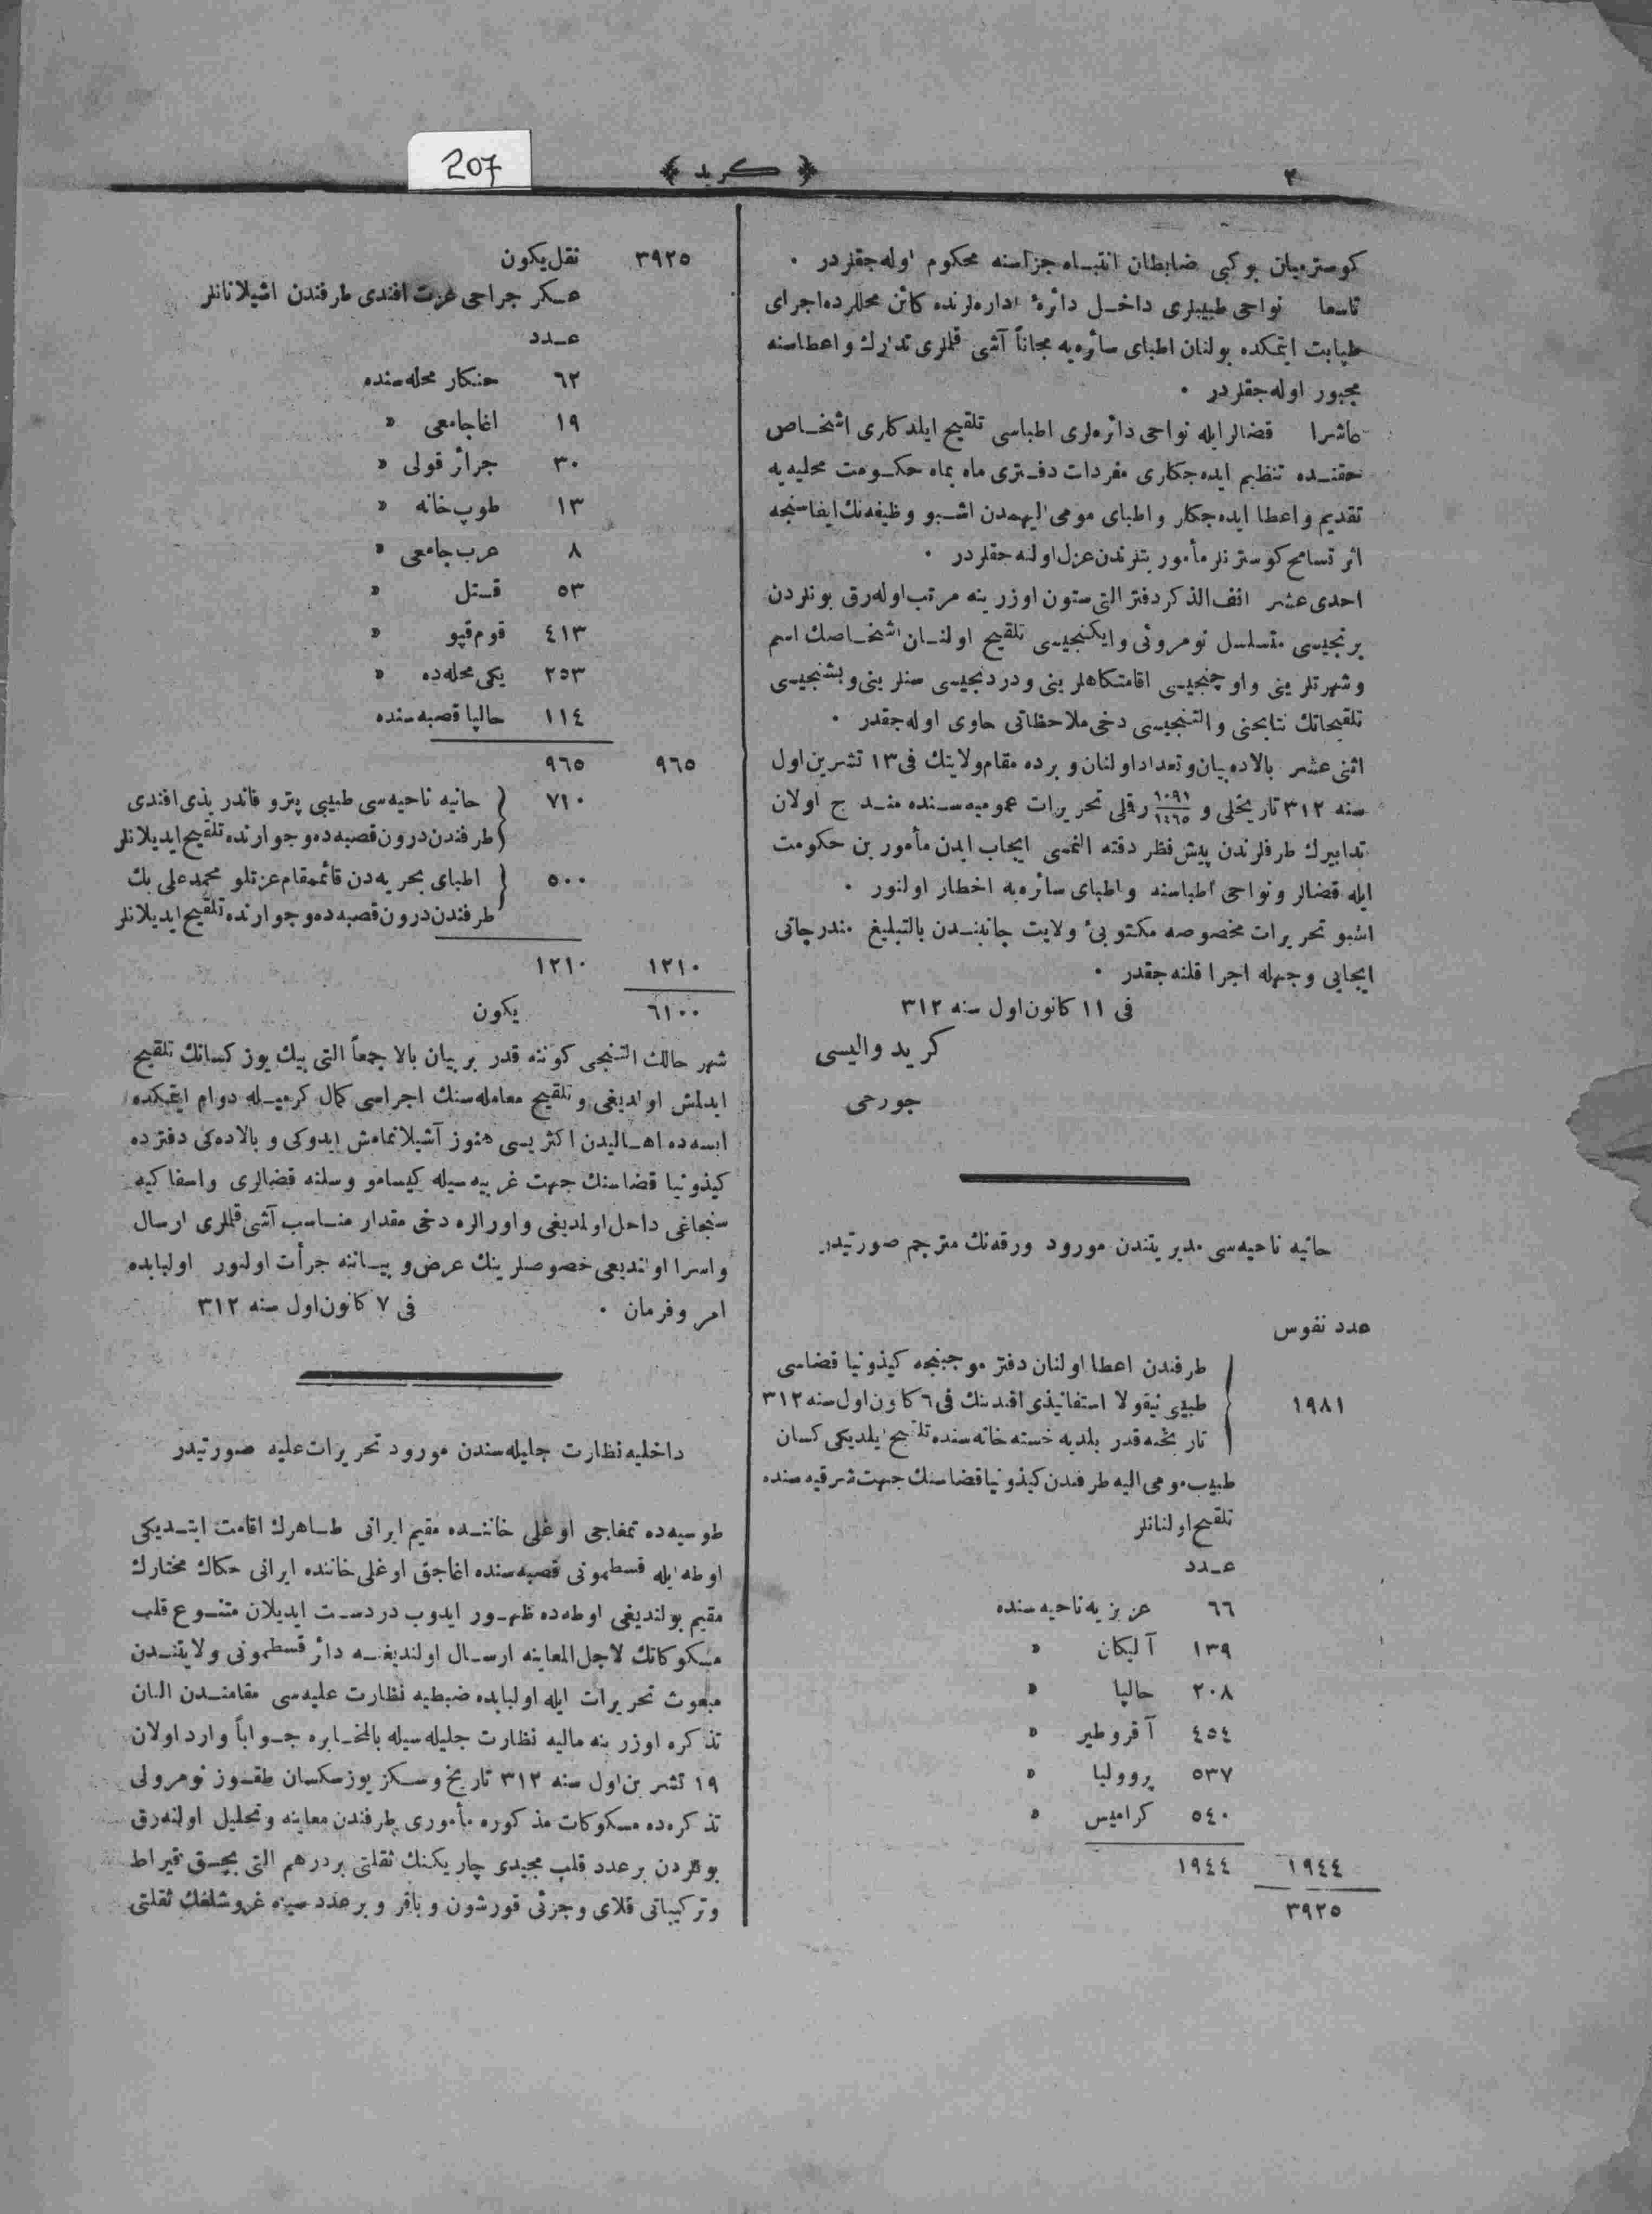 207
﴿ كريد ﴾
٢
كوسترميان بوكبى ضابطان انتباه جزاسنه محكوم اوله‌جقلردر ٠
تاسعا نواحى طبيبلرى داخل دائرۀ اداره‌لرنده كائن محللرده اجراى
طبابت ايتمكده بولنان اطباى سائره‌يه مجاناً آشى قلملرى تدارك و اعطاسنه
مجبور اوله‌جقلردر ٠
عاشرا قضالرايله نواحى دائره‌لرى اطباسى تلقيح ايلدكلرى اشخاص
حقنده تنظيم ايده‌جكلرى مفردات دفترى ماه بماه حكومت محليه‌يه
تقديم و اعطا ايده‌جكلر و اطباى مومى اليهمدن اشبو وظيفه‌نك ايفاسنجه
اثر تسامح كوسترنلر مأموريتلرندن عزل اولنه‌جقلردر ٠
احدى عشر انف الذكر دفتر التى ستون اوزرينه مرتب اوله‌رق بونلردن
برنجيسى متسلسل نومروئى وايكنجيسى تلقيح اولنان اشخاصك اسم
و شهرتلرينى و اوچنجيسى اقامتكاهلرينى و دردنجيسى سنلرينى و بشنجيسى
تلقيحاتك نتايجنى و التنجيسى دخى ملاحظاتى حاوى اوله‌جقدر ٠
اثنى عشر بالاده بيان و تعداد اولنان و برده مقام ولايتك فى ١٣ تشرين اول
سنه ٣١٢ تاريخلى و ١٠٩١/١٤٦٥ رقملى تحريرات عموميه‌سنده مندرج اولان
تدابيرك طرفلرندن پيش نظر دقته النمسى ايجاب ايدن مأمورين حكومت
ايله قضالر و نواحى اطباسنه و اطباى سائره‌يه اخطار اولنور ٠
اشبو تحريرات مخصوصه مكتوبئ ولايت جانبندن بالتبليغ مندرجاتى
ايجابى وجهله اجرا قلنه‌جقدر ٠
فى ١١ كانون اول سنه ٣١٢
كريد واليسى
جورجى
حانيه ناحيه‌سى مديريتندن مورود ورقه‌نك مترجم صورتيدر
عدد نفوس
١٩٨١ طرفندن اعطا اولنان دفتر موجبنجه كيذونيا قضاسى
طبيبى نيقولا استفانيذى افندينك فى ٦ كانون اول سنه ٣١٢
تاريخنه قدر بلديه خسته‌خانه‌سنده تلقيح ايلديكى كسان
طبيب مومى اليه طرفندن كيذونيا قضاسنك جهت شرقيه‌سنده
تلقيح اولنانلر
عدد
٦٦ عزيزيه ناحيه‌سنده
١٣٩ آليكان «
٢٠٨ حالپا «
٤٥٤ آقروطير «
٥٣٧ پروولپا «
٥٤٠ كراميس «
١٩٤٤ ١٩٤٤
٣٩٢٥
٣٩٢٥ نقل يكون
عسكر جراحى عزت افندى طرفندن اشيلانانلر
عدد
٦٢ حنكار محله‌سنده
١٩ اغاجامعى «
٣٠ جزائر قولى «
١٣ طوپ‌خانه «
٨ عرب جامعى «
٥٣ قستل «
٤١٣ قوم‌قپو «
٢٥٣ يكى محله‌ده «
١١٤ حالپا قصبه‌سنده
٩٦٥ ٩٦٥
٧١٠ حانيه ناحيه‌سى طبيبى پترو فاندريذى افندى
طرفندن درون قصبه‌ده و جوارنده تلقيح ايديلانلر
٥٠٠ اطباى بحريه‌دن قائممقام عزتلو محمد على بك
طرفندن درون قصبه‌ده و جوارنده تلقيح ايديلانلر
١٢١٠ ١٢١٠
٦١٠٠ يكون
شهر حالك التنجى كوننه قدر بر بيان بالا جمعاً التى بيك يوز كسانك تلقيح
ايدلمش اولديغى و تلقيح معامله‌سنك اجراسى كمال كرميله دوام ايتمكده
ايسه‌ده اهاليدن اكثريسى هنوز آشيلانمامش ايدوكى و بالاده‌كى دفترده
كيذونيا قضاسنك جهت غربيه‌سيله كيسامو و سلنه قضالرى و اسفاكيه
سنجاغى داخل اولمديغى و اورالره دخى مقدار مناسب آشى قلملرى ارسال
و اسرا اولنديغى خصوصلرينك عرض و بياننه جرأت اولنور اولبابده
امر و فرمان ٠ فى ٧ كانون اول سنه ٣١٢
داخليه نظارت جليله‌سندن مورود تحريرات عليه صورتيدر
طوسيه‌ده تمغاجى اوغلى خاننده مقيم ايرانى طاهرك اقامت ايتديكى
اوطه ايله قسطمونى قصبه‌سنده اغاجق اوغلى خاننده ايرانى حكاك مختارك
مقيم بولنديغى اوطه‌ده ظهور ايدوب دردست ايديلان متنوع قلب
مسكوكاتك لاجل المعاينه ارسال اولنديغنه دائر قسطمونى ولايتندن
مبعوث تحريرات ايله اولبابده ضبطيه نظارت عليه‌سى مقامندن النان
تذكره اوزرينه ماليه نظارت جليله‌سيله بالمخابره جواباً وارد اولان
١٩ تشرين اول سنه ٣١٢ تاريخ و سكز يوز سكسان طقوز نومرولى
تذكره‌ده مسكوكات مذكوره مأمورى طرفندن معاينه و تحليل اولنه‌رق
بونلردن بر عدد قلب مجيدى چاريكنك ثقلتى بر درهم التى بچق قيراط
و تركيباتى قلاى و جزئى قورشون و باقر و بر عدد سيزه غروشلغك ثقلتى